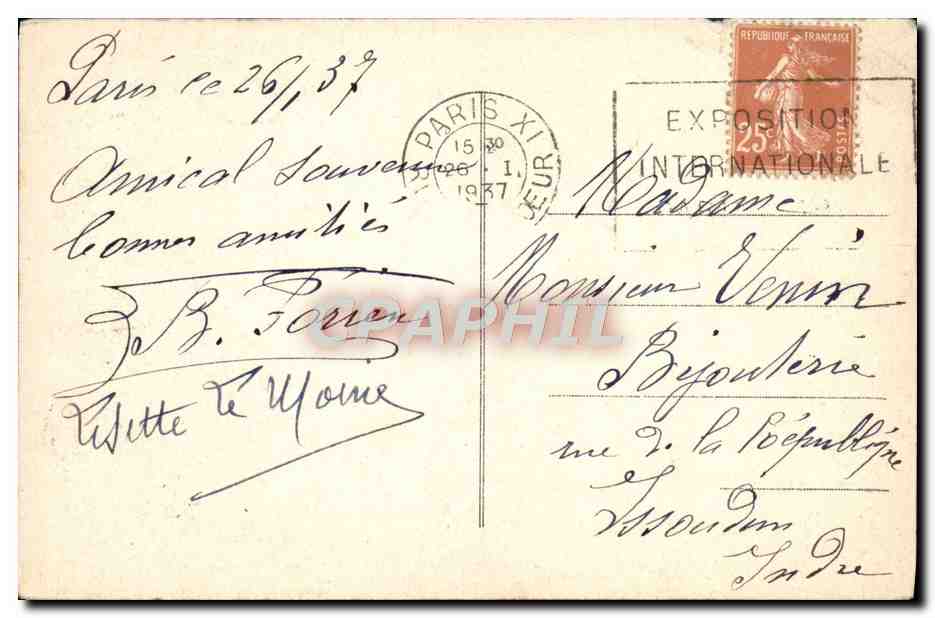 Paris le 26/1 37
Amical souvenir
bonnes amitiés
B.
Lisette Le Moine
PARIS XI
15 30
26 · I.
1937
REPUBLIQUE FRANÇAISE
25c
POSTES
EXPOSITION
INTERNATIONALE
Madame
Monsieur Venin
Bijouterie
rue d. la République
Issoudun
Indre
CPAPHIL